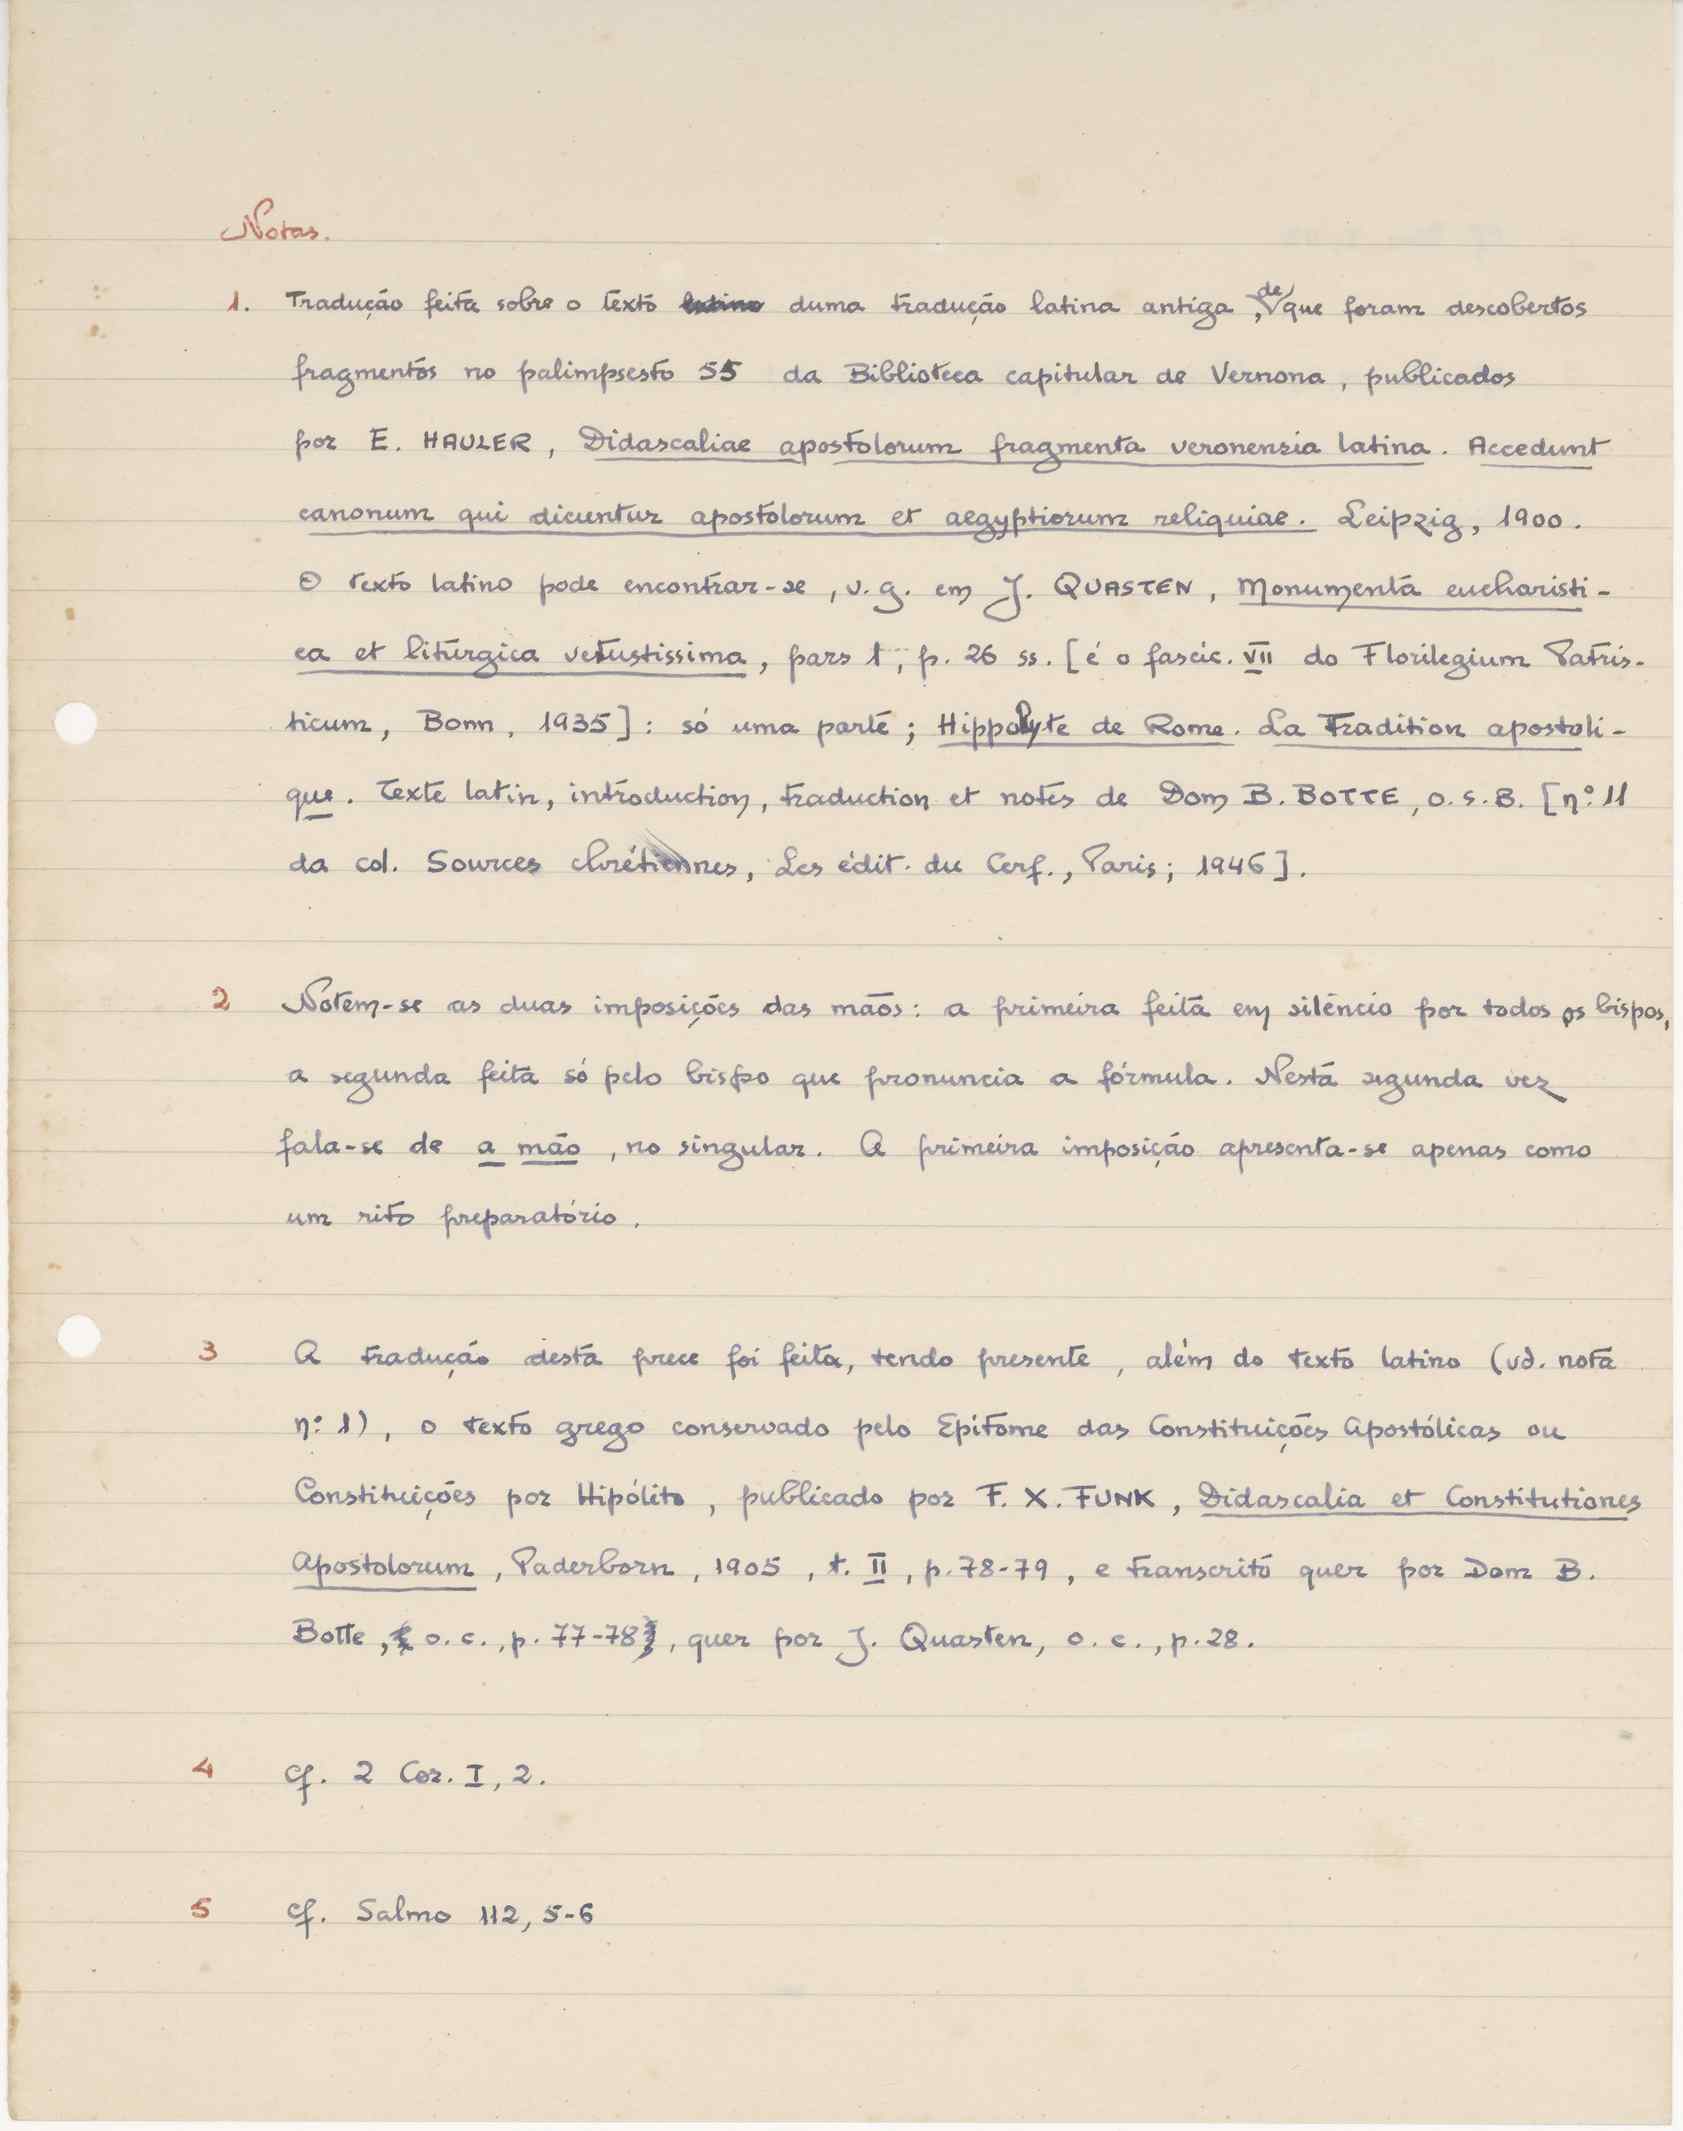 Notas.
1. Tradução feita sobre o texto duma tradução latina antiga, de que foram descobertos
fragmentos no palimpsesto 55 da Biblioteca capitular de Vernona, publicados
por E. HAULER, Didascaliae apostolorum fragmenta veronensia latina. Accedunt
canonum qui dicuntur apostolorum et aegyptiorum reliquiae. Leipzig, 1900.
O texto latino pode encontrar-se, v. g. em J. QUASTEN, Monumenta eucharisti-
ca et liturgica vetustissima, pars 1, p. 26 ss. [é o fascic. VII do Florilegium Patris-
ticum, Bonn, 1935]: só uma parte; Hippolyte de Rome. La Tradition apostoli-
que. Texte latin, introduction, traduction et notes de Dom B. BOTTE, O. S. B. [nº 11
da col. Sources chrétiennes, Les édit. du Cerf., Paris; 1946].
2 Notem-se as duas imposições das mãos: a primeira feita em silêncio por todos os bispos,
a segunda feita só pelo bispo que pronuncia a fórmula. Nesta segunda vez
fala-se de a mão, no singular. A primeira imposição apresenta-se apenas como
um rito preparatório.
3 A tradução desta prece foi feita, tendo presente, além do texto latino (vd. nota
nº 1), o texto grego conservado pelo Epítome das Constituições Apostólicas ou
Constituições por Hipólito, publicado por F. X. FUNK, Didascalia et Constitutiones
Apostolorum, Paderborn, 1905, t. II, p. 78-79, e transcrito quer por Dom B.
Botte, o. c., p. 77-78, quer por J. Quasten, o. c., p. 28.
4 Cf. 2 Cor. I, 2.
5 Cf. Salmo 112, 5-6